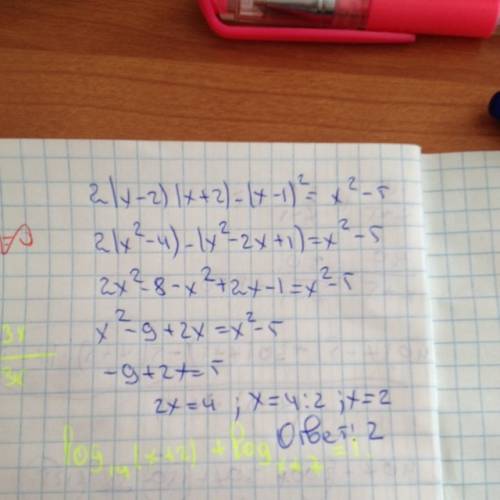 2(x-2)(x+2)-(x-1)²= x²-5
2(x²-4)-(x²-2x+1)=x²-5
2x²-8-x²+2x-1=x²-5
x²-9+2x=x²-5
-9+2x=5
2x=4 ; x=4:2 ; x=2
Ответ: 2
3x
3x